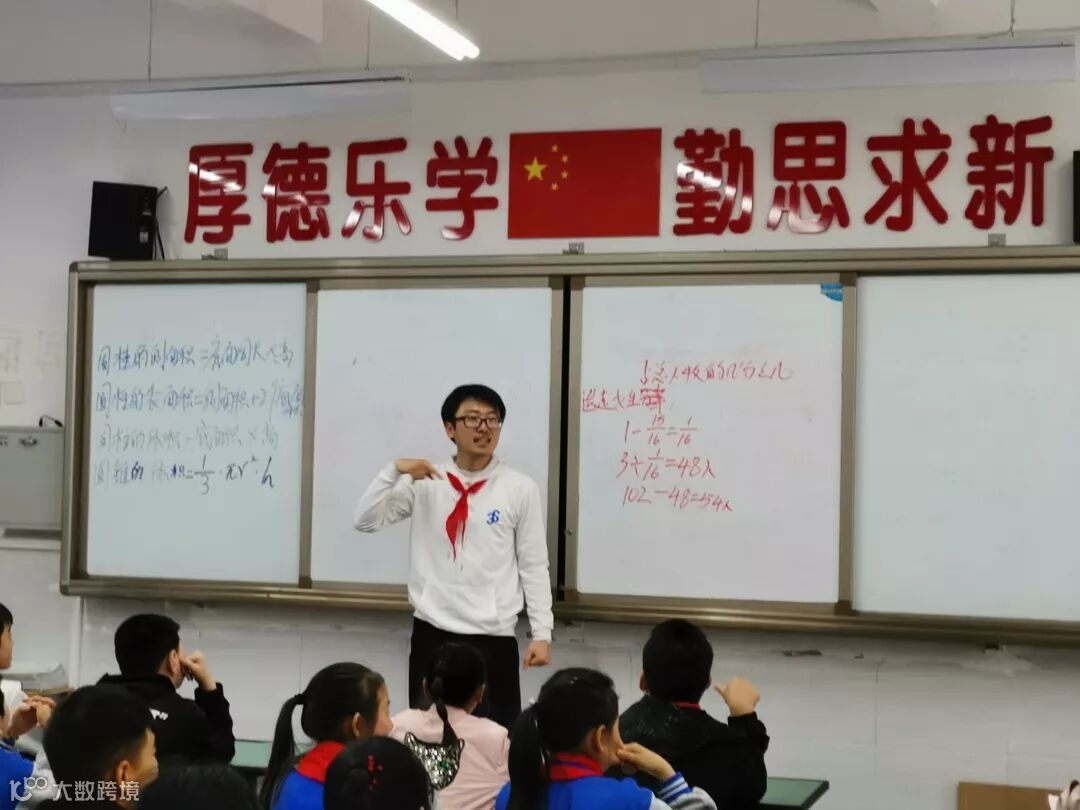 厚德乐学 勤思求新
圆柱的侧面积=底面周长×高
圆柱的表面积=侧面积+2底面积
圆柱的体积=底面积×高
圆锥的体积=1/3·πr²·h
占总人数的几分之几
1-15/16=1/16
3÷1/16=48人
102-48=54人
大数跨境